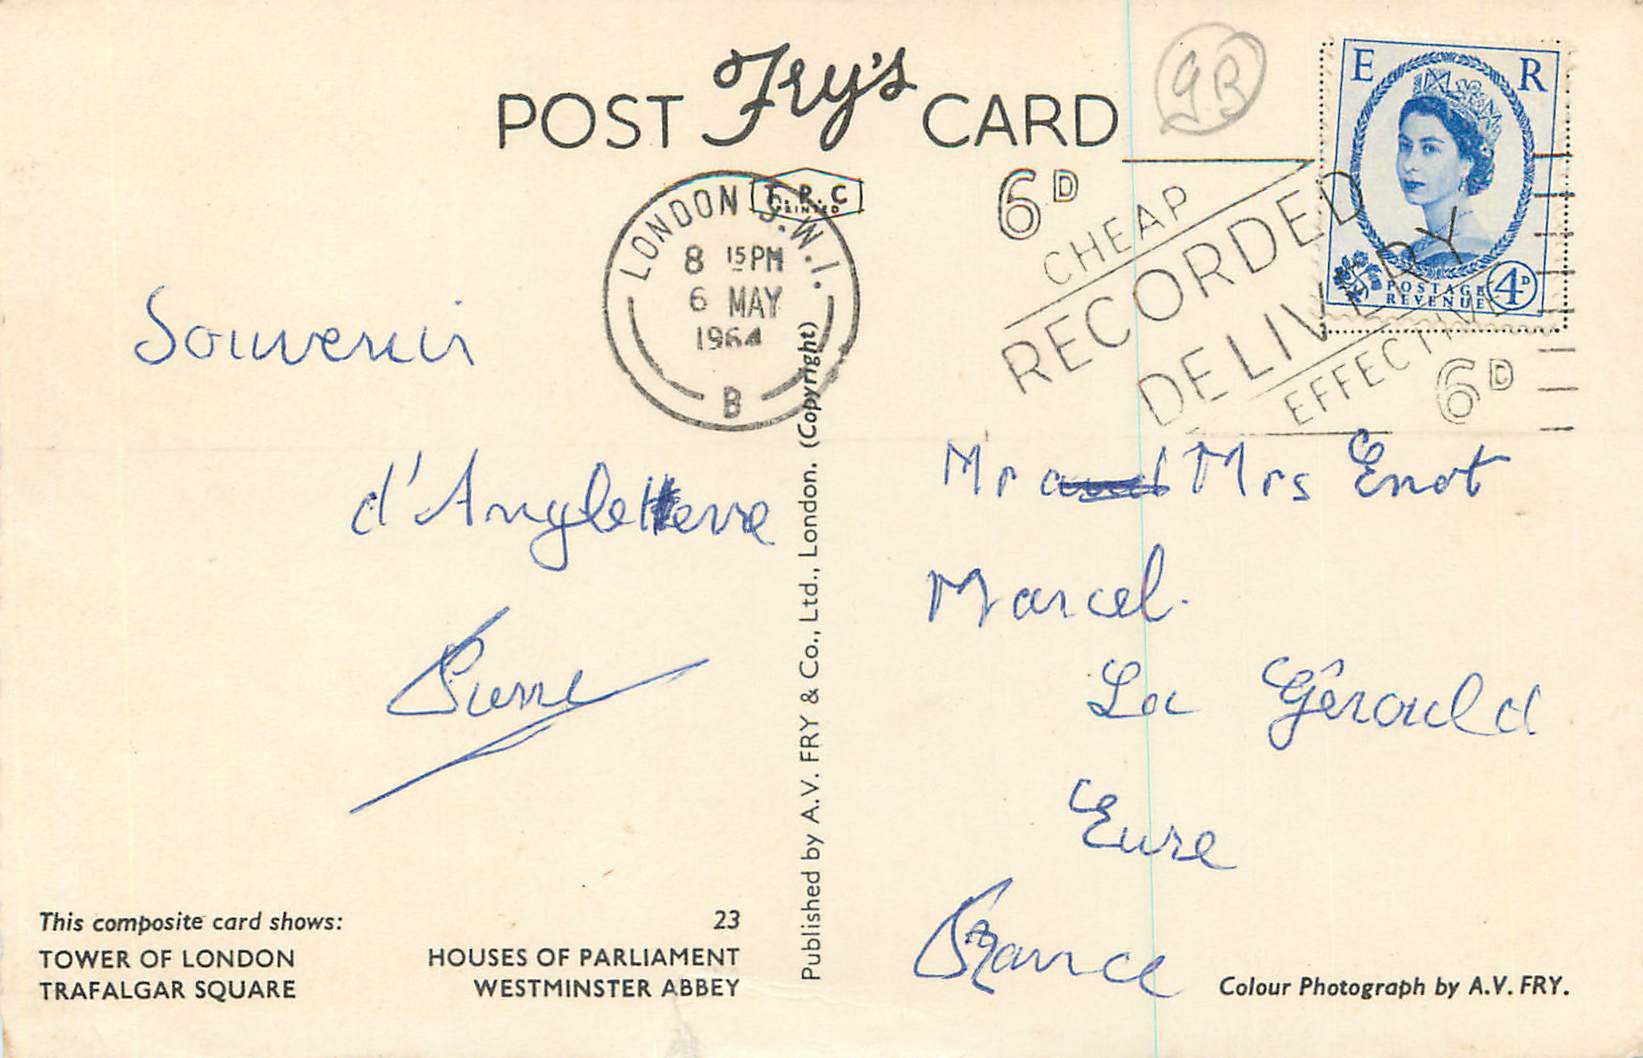 POST Fry's CARD
GB
T.P.C
PRINTED
LONDON S.W.1.
8 15 PM
6 MAY
1964
B
6D
CHEAP
RECORDED
DELIVERY
EFFECTIVE
6D
E R
POSTAGE
REVENUE
4D
Souvenir
d'Angleterre
Mr and Mrs Enot
Marcel.
La Gérould
Eure
France
Published by A.V. FRY & Co., Ltd., London. (Copyright)
This composite card shows:
TOWER OF LONDON
TRAFALGAR SQUARE
23
HOUSES OF PARLIAMENT
WESTMINSTER ABBEY
Colour Photograph by A.V. FRY.